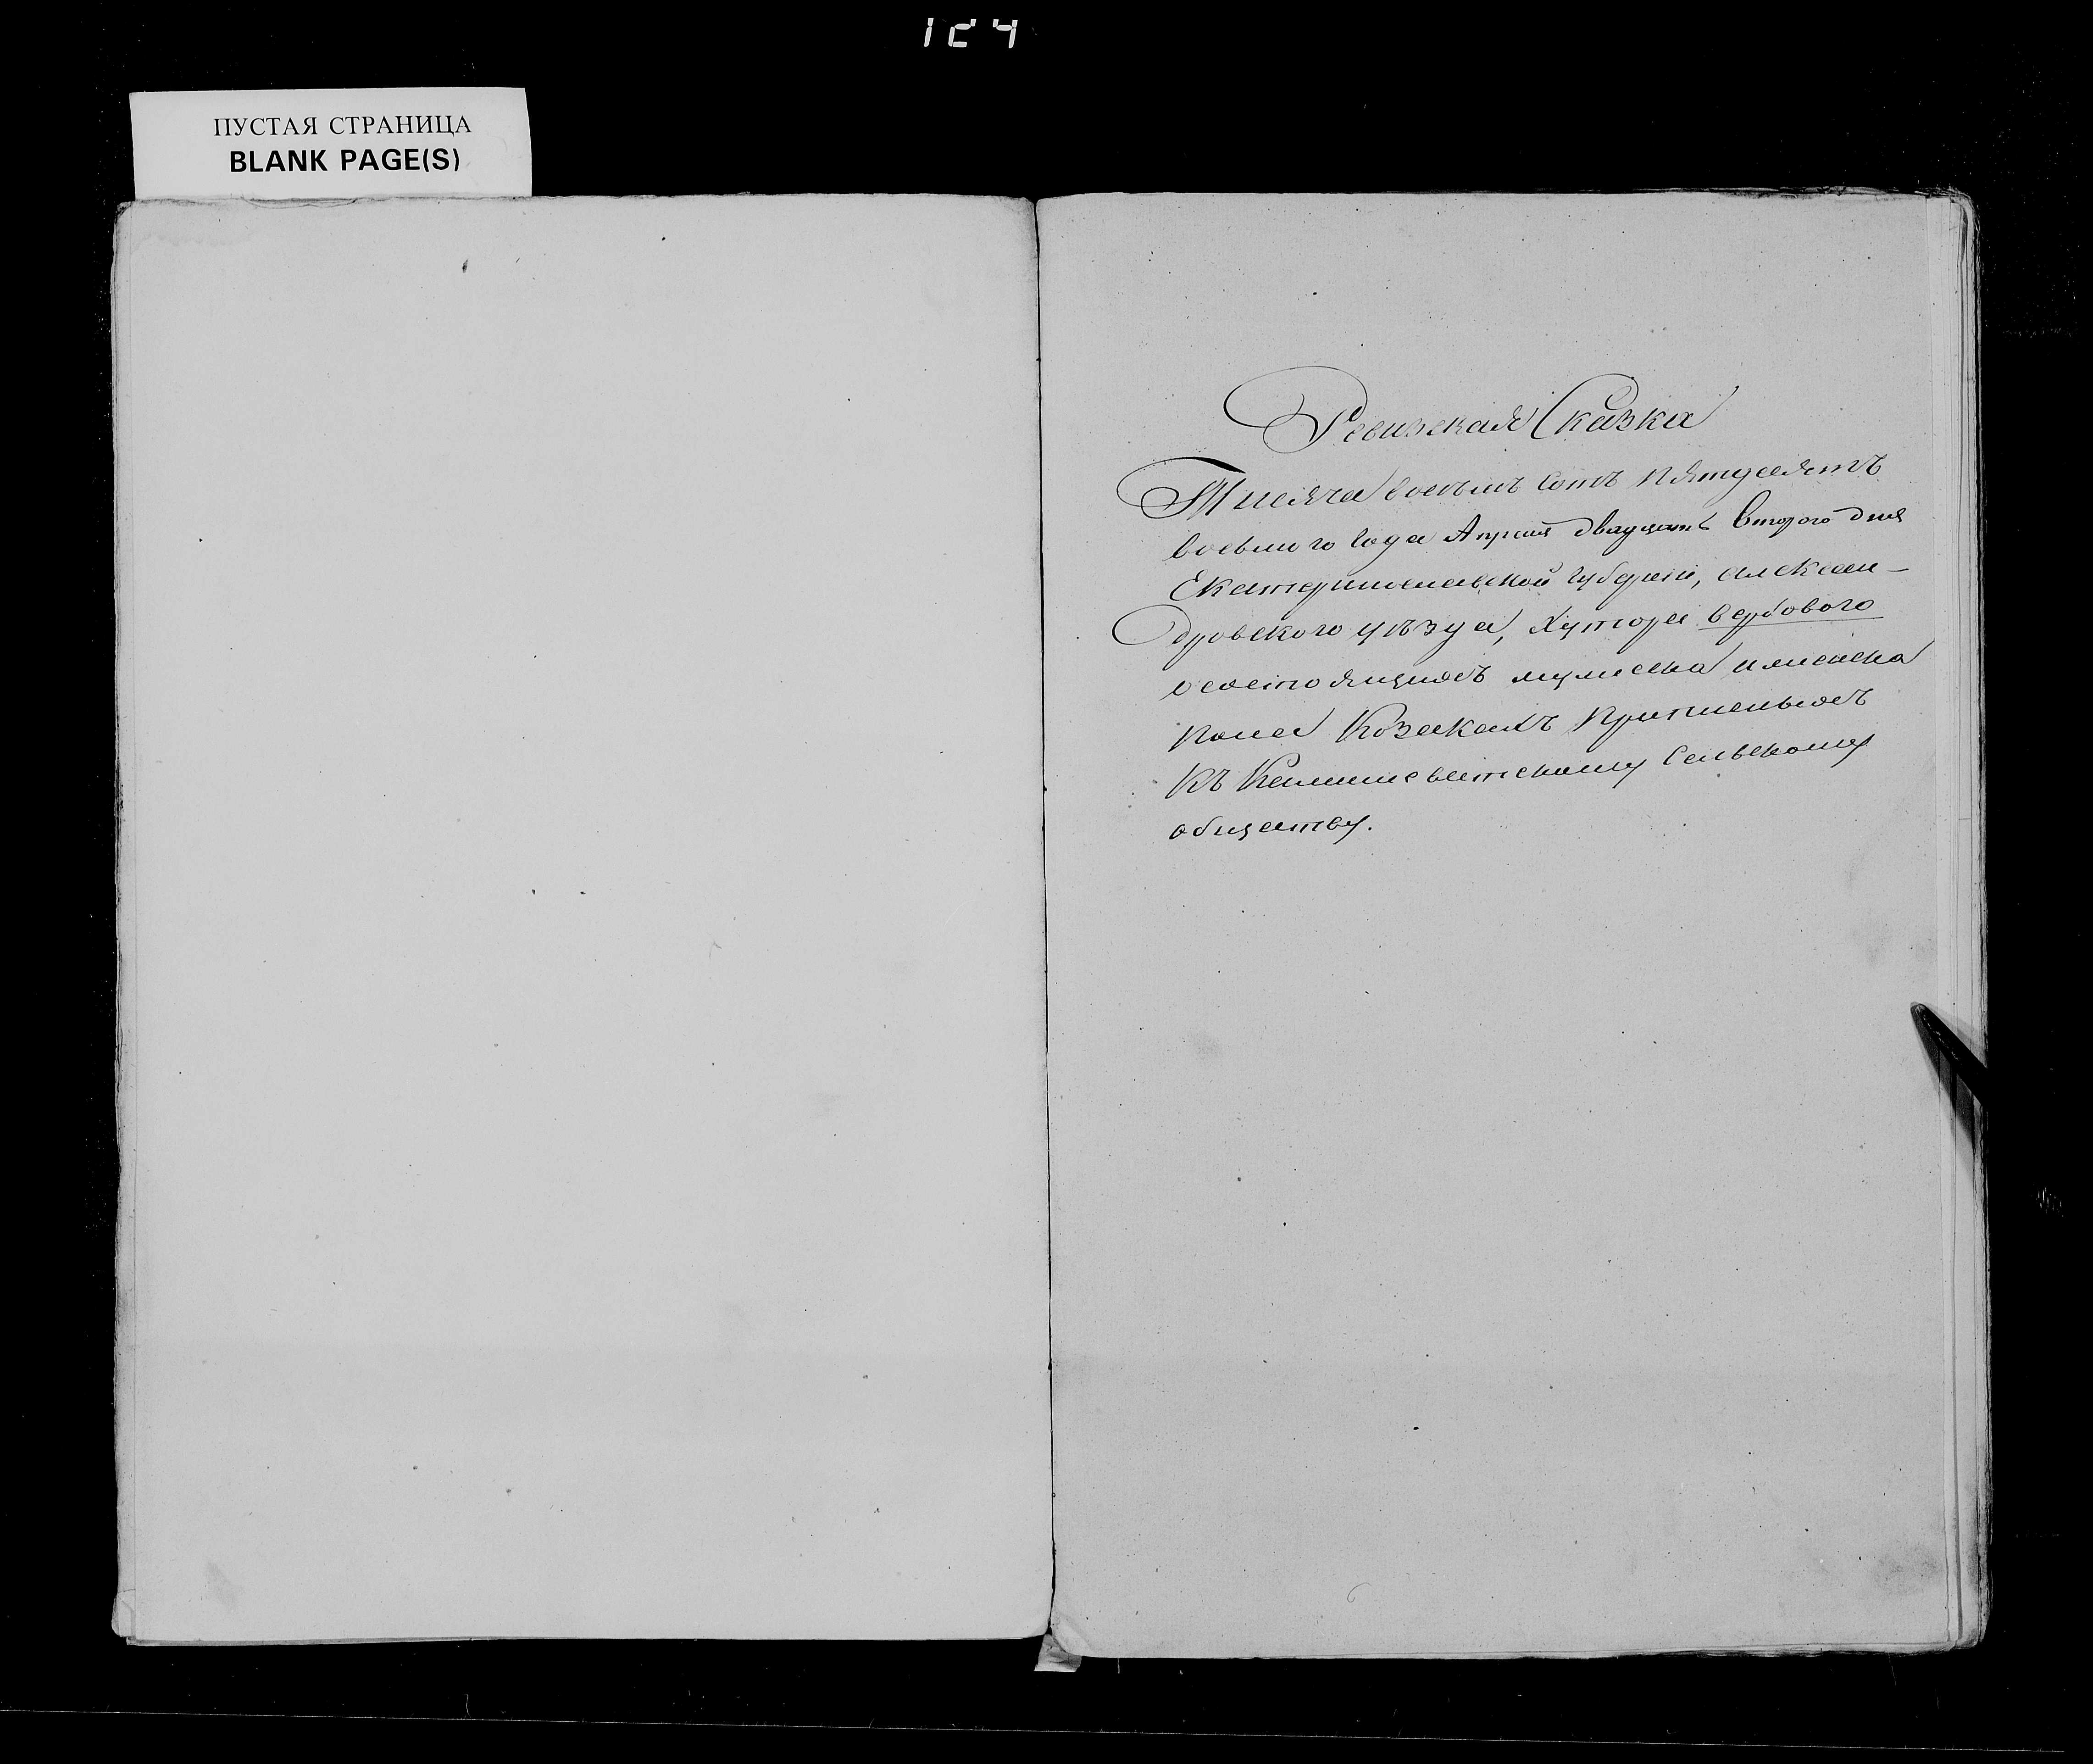 124
ПУСТАЯ СТРАНИЦА
BLANK PAGE(S)
Ревизская Сказка
Тысяча восемь сотъ пятдесятъ
восьмого года Апреля двадцать второго дня
Екатеринославской губерніи, Алексан-
дровского уѣзда, Хутора Вербового
о состоящихъ мужеска и женска
пола Козакахъ Приписныхъ
къ сельскому
обществу.